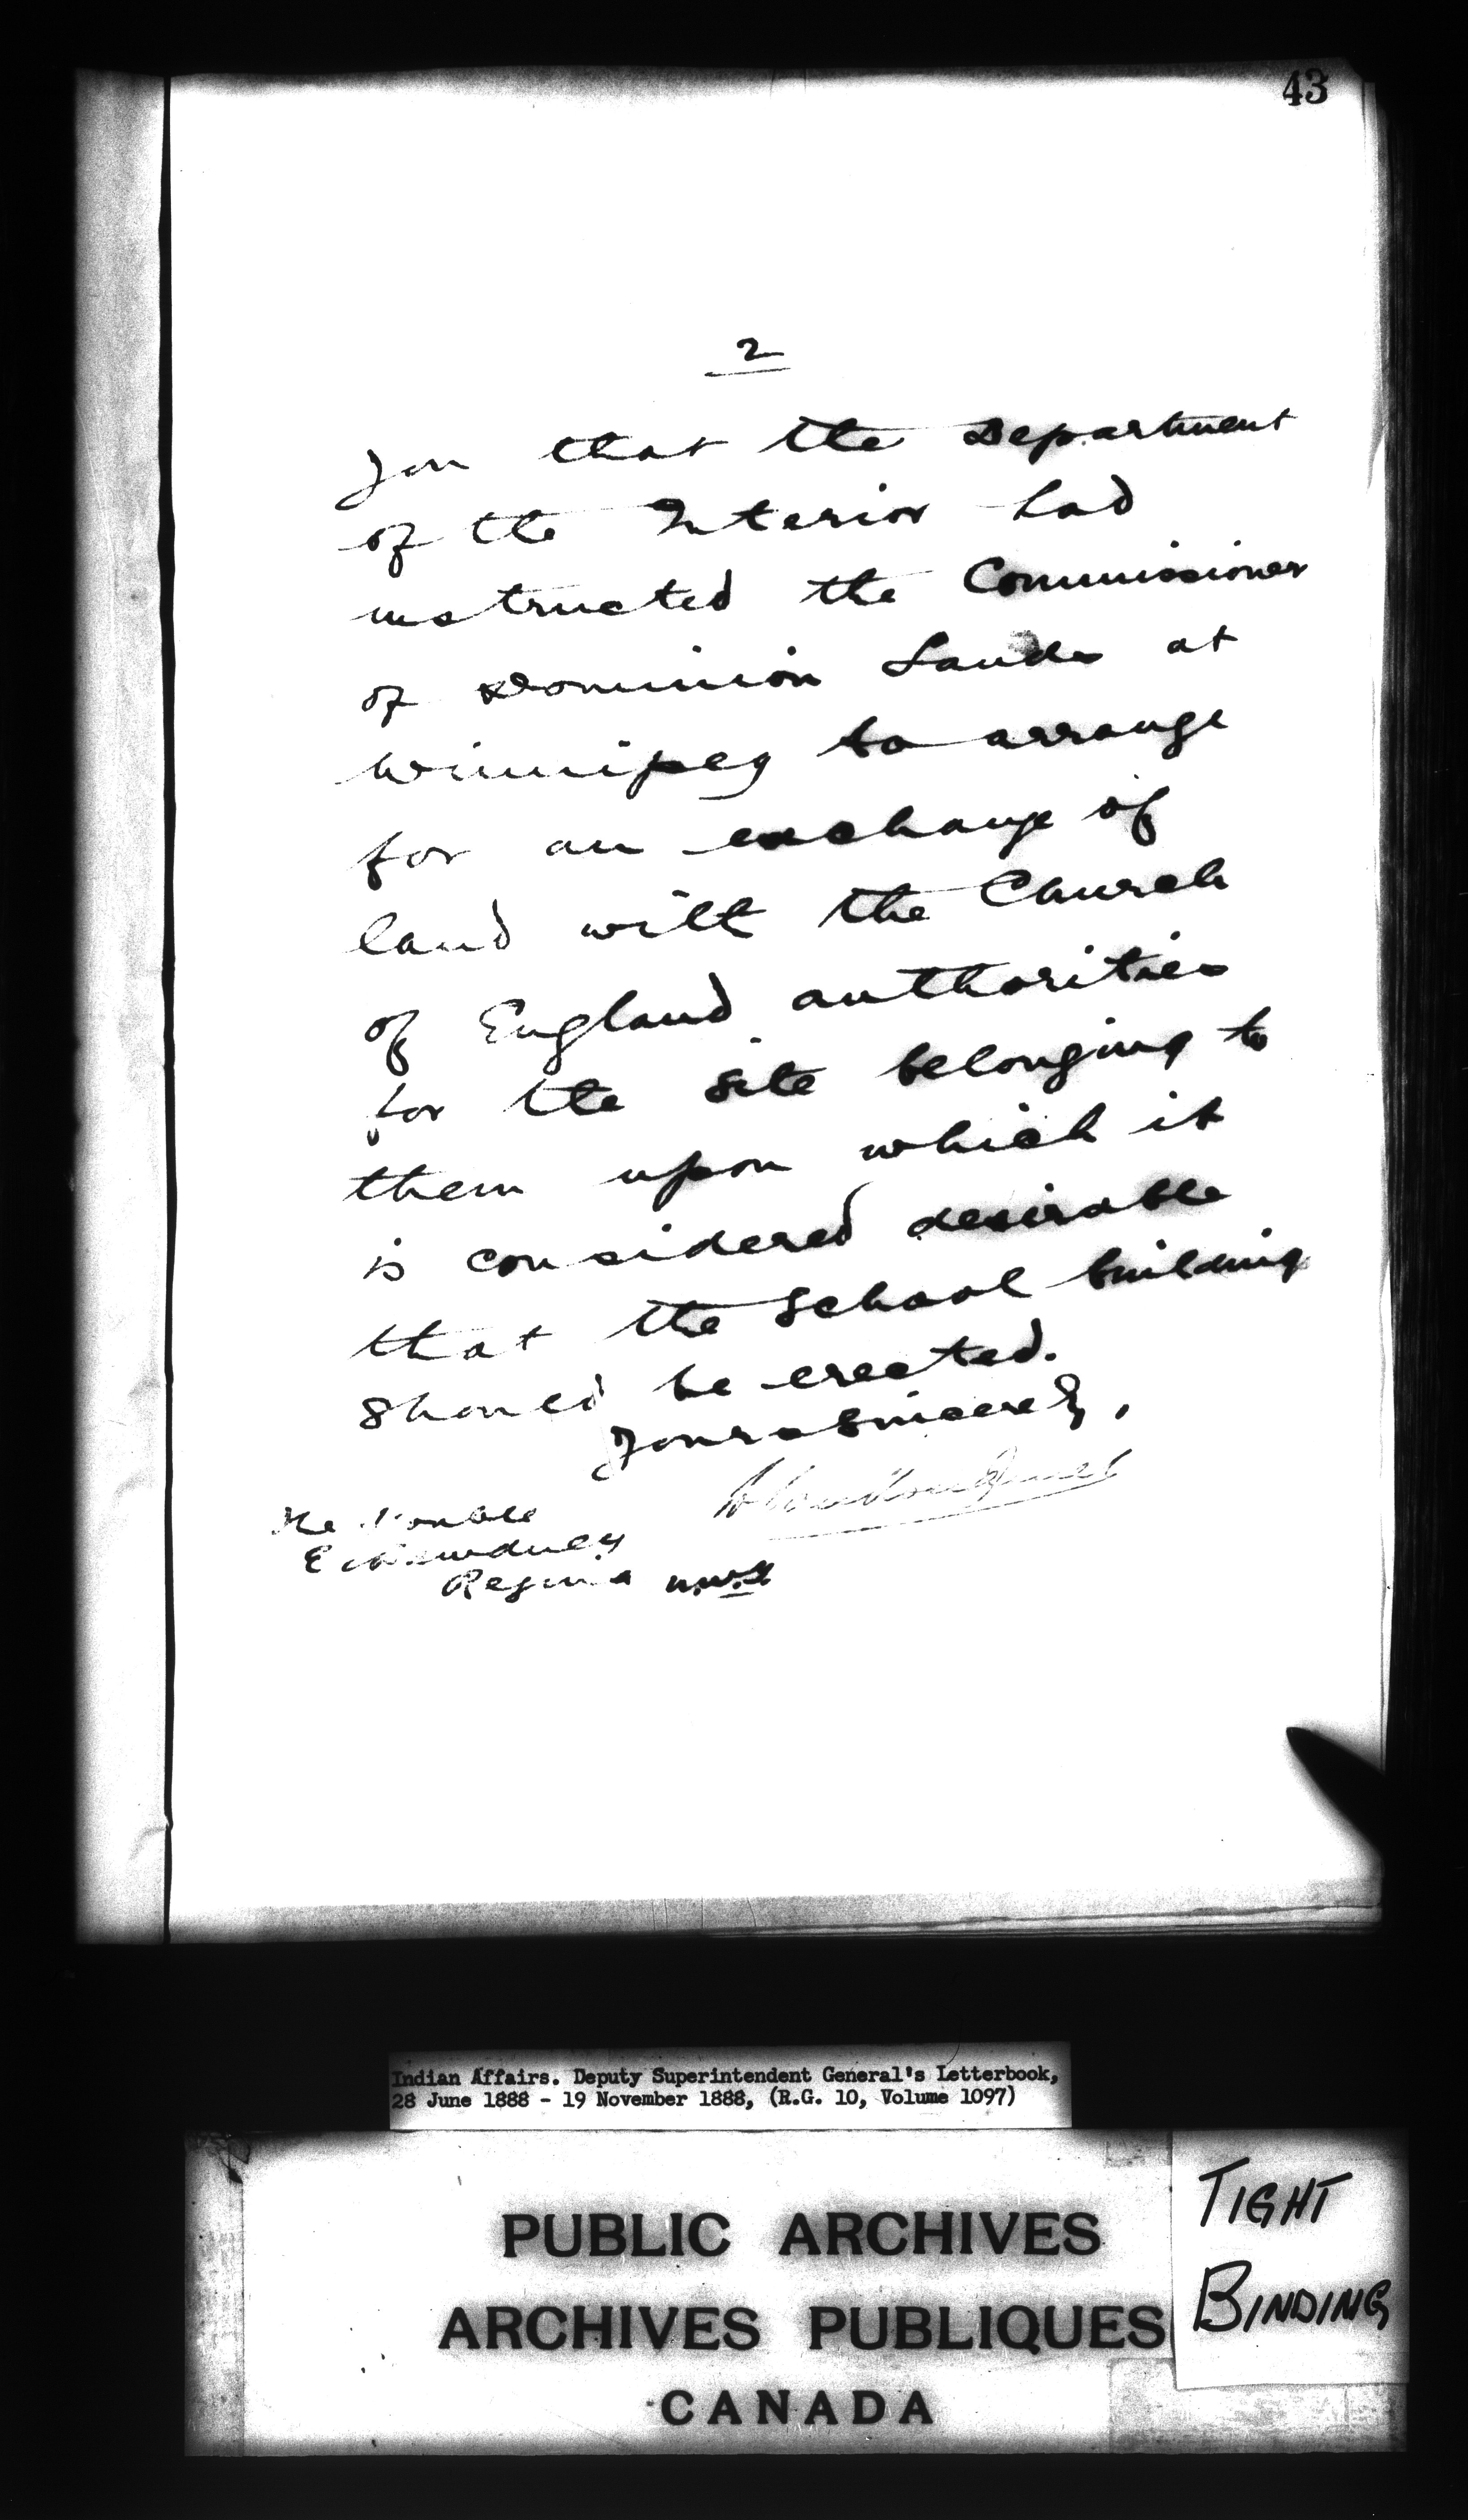 43
2
you that the Department
of the Interior had
instructed the Commissioner
of Dominion Lands at
Winnipeg to arrange
for an exchange of
land with the Church
of England authorities
for the site belonging to
them upon which it
is considered desirable
that the School building
should be erected.
Yours Sincerely,
L Vankoughnet
The Honble
E Dewdney
Regina N.W.T.
Indian Affairs. Deputy Superintendent General's Letterbook,
28 June 1888 - 19 November 1888, (R.G. 10, Volume 1097)
PUBLIC ARCHIVES
ARCHIVES PUBLIQUES
CANADA
TIGHT
BINDING